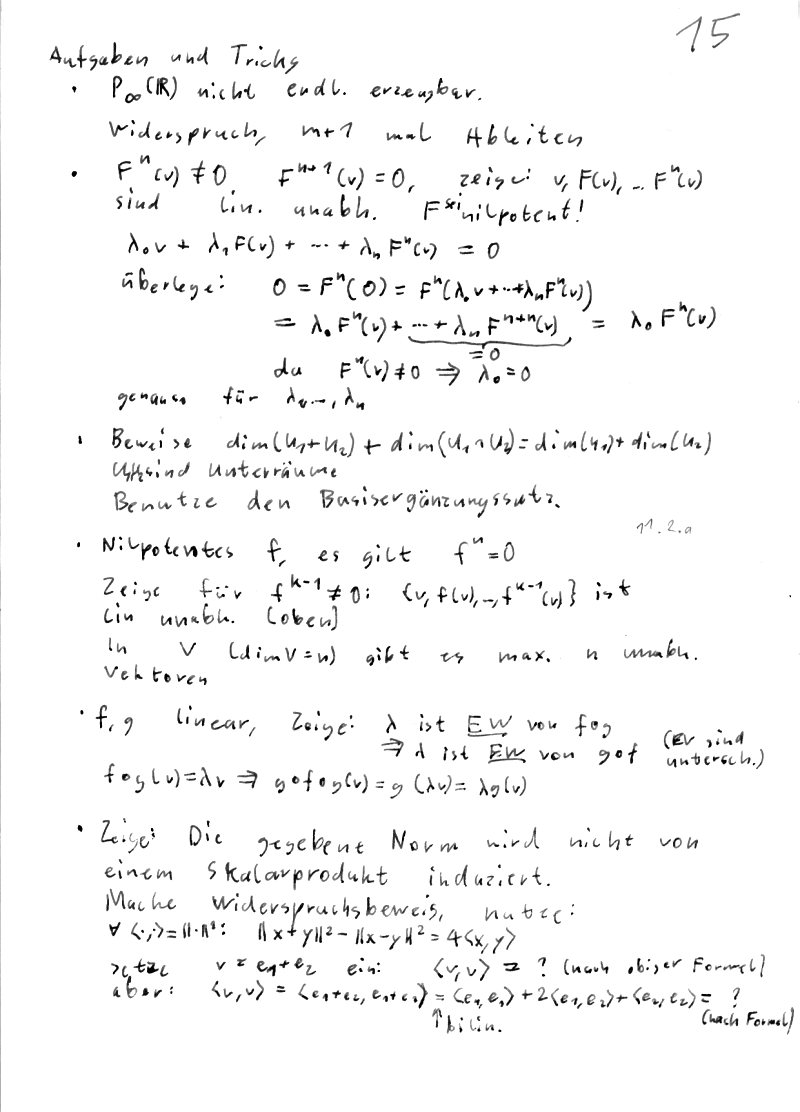 15
Aufgaben und Tricks
• P∞(ℝ) nicht endl. erzeugbar.
Widerspruch, m+1 mal Ableiten
• Fⁿ(v) ≠ 0 Fⁿ⁺¹(v) = 0, zeige: v, F(v), ... Fⁿ(v)
sind lin. unabh. F sei nilpotent!
λ₀v + λ₁F(v) + ··· + λₙFⁿ(v) = 0
überlege: 0 = Fⁿ(0) = Fⁿ(λ₀v + ··· + λₙFⁿ(v))
= λ₀Fⁿ(v) + ··· + λₙFⁿ⁺ⁿ(v) = λ₀Fⁿ(v)
=0
da Fⁿ(v) ≠ 0 ⇒ λ₀ = 0
genauso für λ₁, ..., λₙ
• Beweise dim(U₁+U₂) + dim(U₁∩U₂) = dim(U₁) + dim(U₂)
U₁,U₂ sind Unterräume
Benutze den Basisergänzungssatz.
11.2.a
• Nilpotentes f, es gilt fⁿ=0
Zeige für fᵏ⁻¹ ≠ 0: {v, f(v), ..., fᵏ⁻¹(v)} ist
lin unabh. (oben)
In V (dim V = n) gibt es max. n unabh.
Vektoren
• f, g linear, Zeige: λ ist EW von f∘g
⇒ λ ist EW von g∘f (EV sind
untersch.)
f∘g(v) = λv ⇒ g∘f∘g(v) = g(λv) = λg(v)
• Zeige: Die gegebene Norm wird nicht von
einem Skalarprodukt induziert.
Mache Widerspruchsbeweis, nutze:
∀ ⟨·,·⟩ = ||·||²: ||x+y||² − ||x−y||² = 4⟨x,y⟩
setze v = e₁+e₂ ein: ⟨v,v⟩ = ? (nach obiger Formel)
aber: ⟨v,v⟩ = ⟨e₁+e₂, e₁+e₂⟩ = ⟨e₁,e₁⟩ + 2⟨e₁,e₂⟩ + ⟨e₂,e₂⟩ = ?
↑ bilin. (nach Formel)